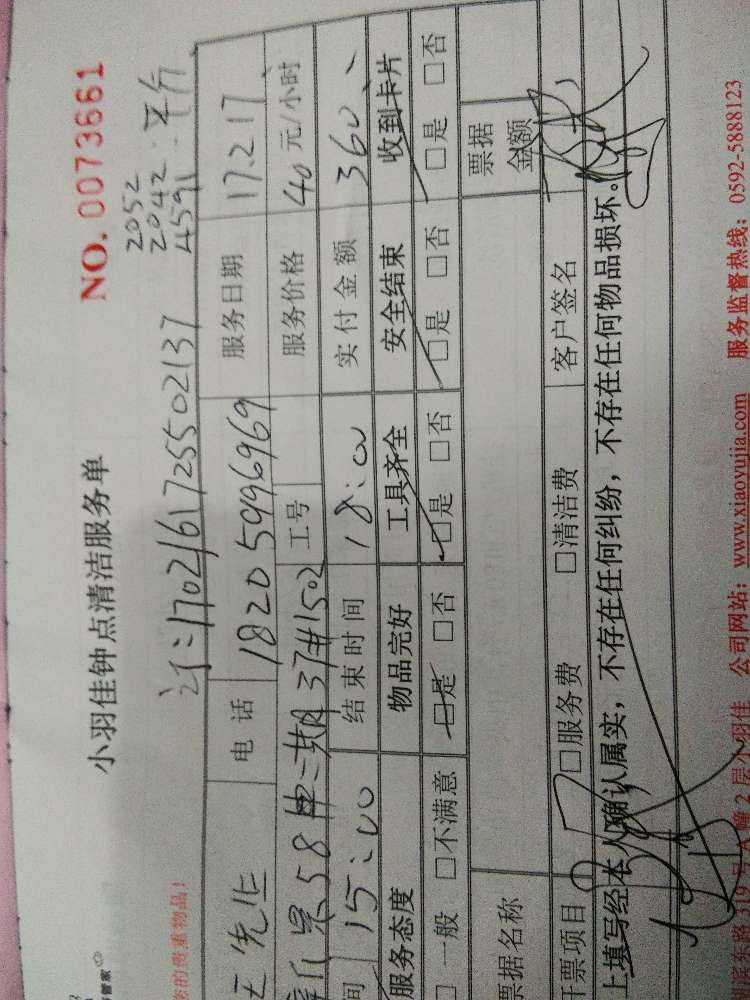 小羽佳钟点清洁服务单
NO. 0073661
2052
2042 · 平台
4591
订:17021617255502137
您的贵重物品!
先生 电话 18205996969 服务日期 17.2.17
景58 二期37#1502 工号 服务价格 40元/小时
间 15:00 结束时间 18:00 实付金额 360
服务态度 物品完好 工具齐全 安全结束 收到卡片
□一般 □不满意 □是 □否 □是 □否 □是 □否 □是 □否
票据名称 票据金额
开票项目 □服务费 □清洁费 客户签名
上填写经本人确认属实,不存在任何纠纷,不存在任何物品损坏。
东路 319 号 2 层小羽佳 公司网站:www.xiaoyujia.com 服务监督热线:0592-5888123